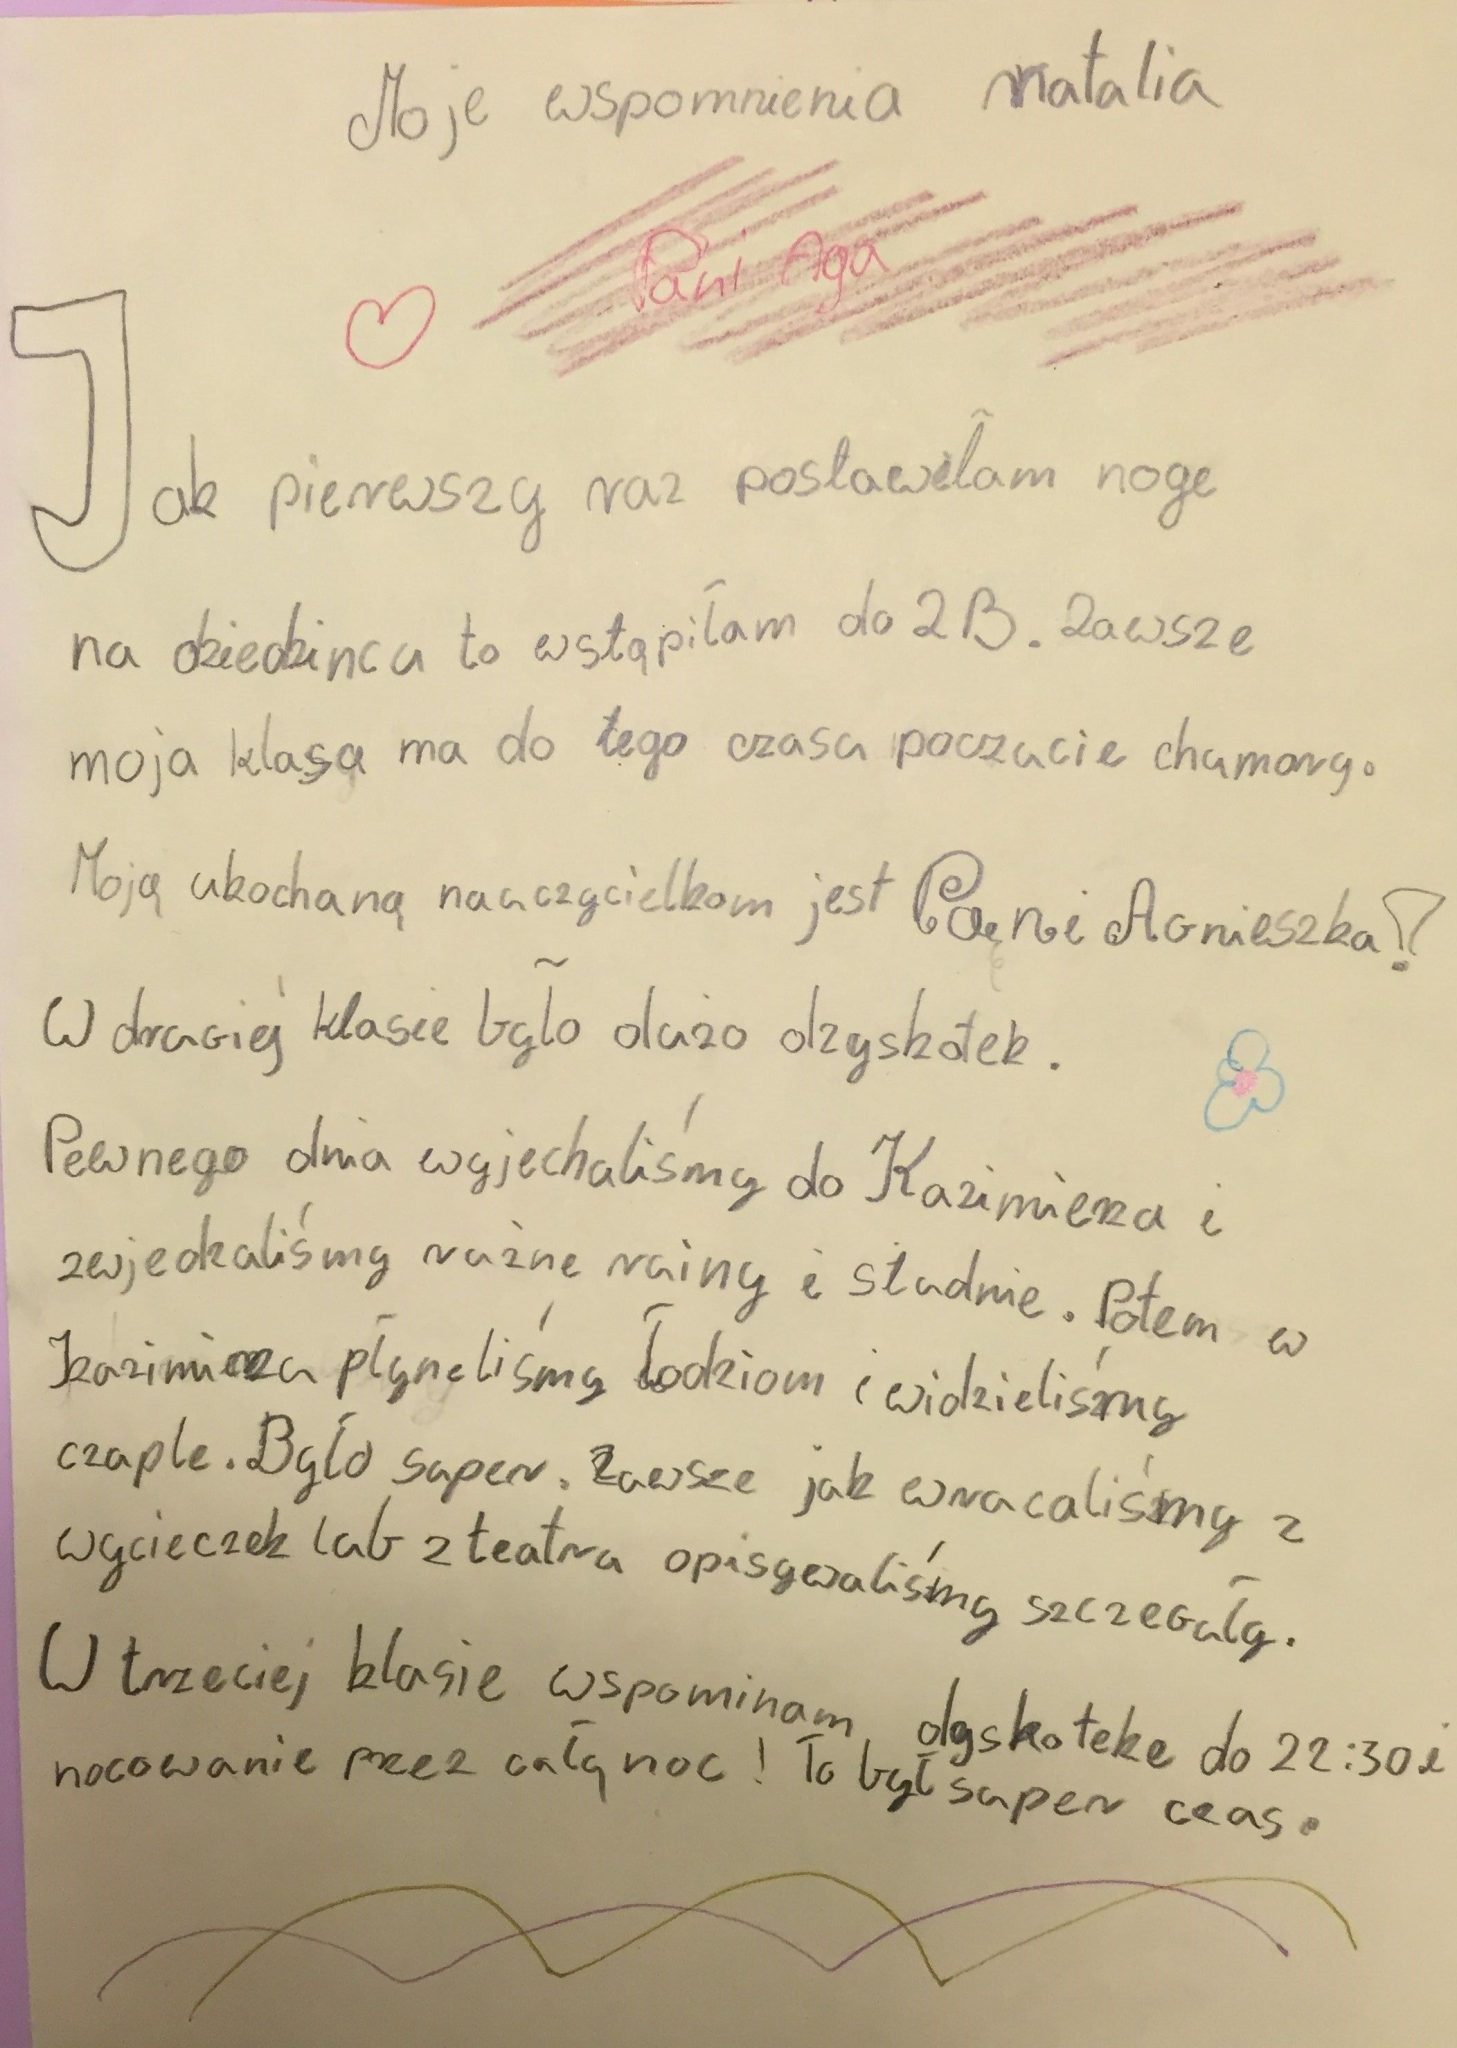 Moje wspomnienia natalia
Pani Aga
Jak pierwszy raz postawiłam noge
na dziedzincu to wstąpiłam do 2B. Zawsze
moja klasa ma do tego czasu poczucie chumory.
Moją ukochaną nauczycielkom jest Pani Agnieszka!
W drugiej klasie było dużo dzyskotek.
Pewnego dnia wyjechaliśmy do Kazimierza i
zwjedzaliśmy rużne ruiny i studnie. Potem w
Kazimierzu płyneliśmy łodziom i widzieliśmy
czaple. Było super. Zawsze jak wracaliśmy z
wycieczek lub z teatru opisywaliśmy szczeguły.
W trzeciej klasie wspominam dyskoteke do 22:30 i
nocowanie przez całą noc! To był super czas.